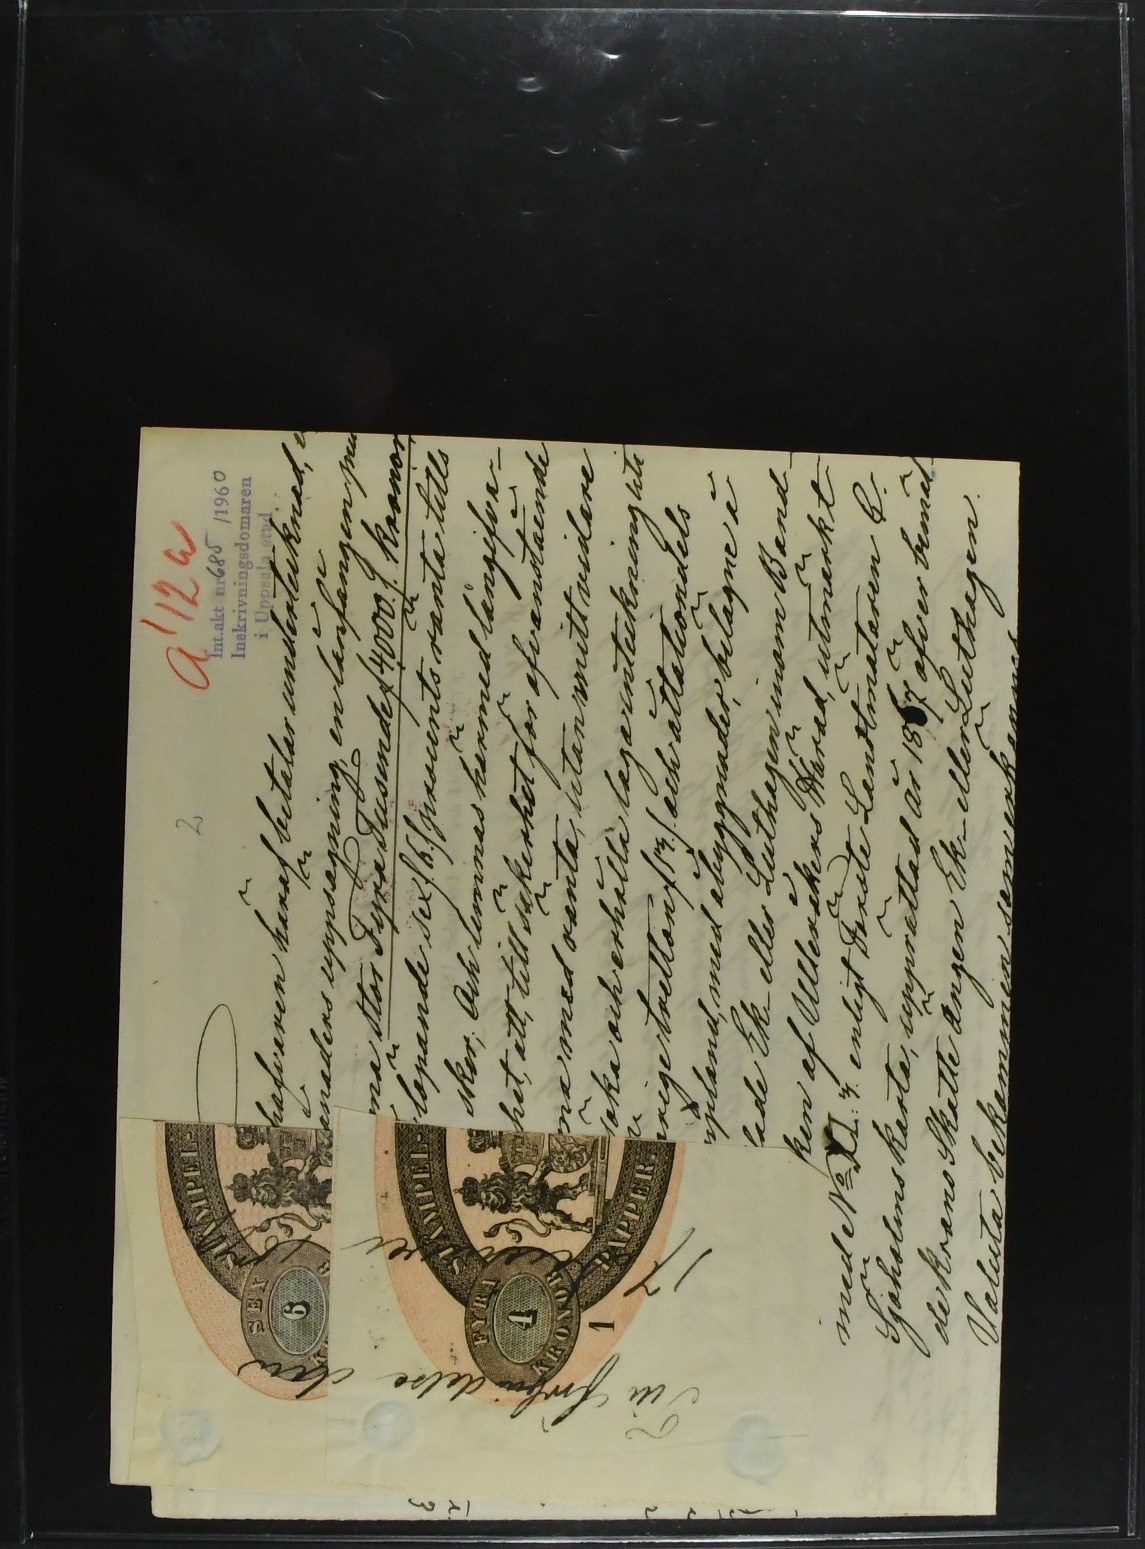 a 112 a
Int.akt nr 685 /1960
Inskrivningsdomaren
i Uppsala stad
2
hafvaren häraf betalar undertecknad,
anaders uppsägning, en länfången
ma stor Fyra Tusende /4000./ kronor
löpande sex /6./ procents ränta tills
sker; Och lemnas härmed längifva-
het, att, till säkerhet för ofvanstående
ma med ränta, utan mitt vidare
öka och erhålla laga inteckning uti
erige tretton /13/ och åttationdels
npland, med åbyggnader, belägne å
lade Ek- eller Luthagen inom Bond-
ken af Ulleråkers Härad, utmärkt
med e No XI: 3. enligt Förste Landtmätaren C.
Sjöholms karta, upprättad år 1867 öfver bemäl
de krono Skatte ängen Ek- eller Luthagen.
Valuta bekommen, som erkännes
STÄMPEL-
SEX
6
STÄMPEL-
PAPPER.
FYRA
4
KRONOR
1
Till